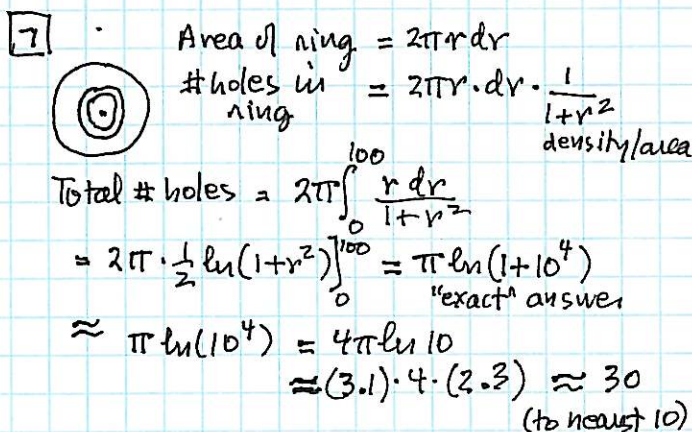 7
Area of ring = 2πr dr
#holes in ring = 2πr·dr· 1/(1+r²)
density/area
Total # holes = 2π ∫₀¹⁰⁰ r dr/(1+r²)
= 2π · ½ ln(1+r²)]₀¹⁰⁰ = π ln(1+10⁴)
"exact" answer
≈ π ln(10⁴) = 4π ln 10
≈ (3.1)·4·(2.3) ≈ 30
(to nearest 10)